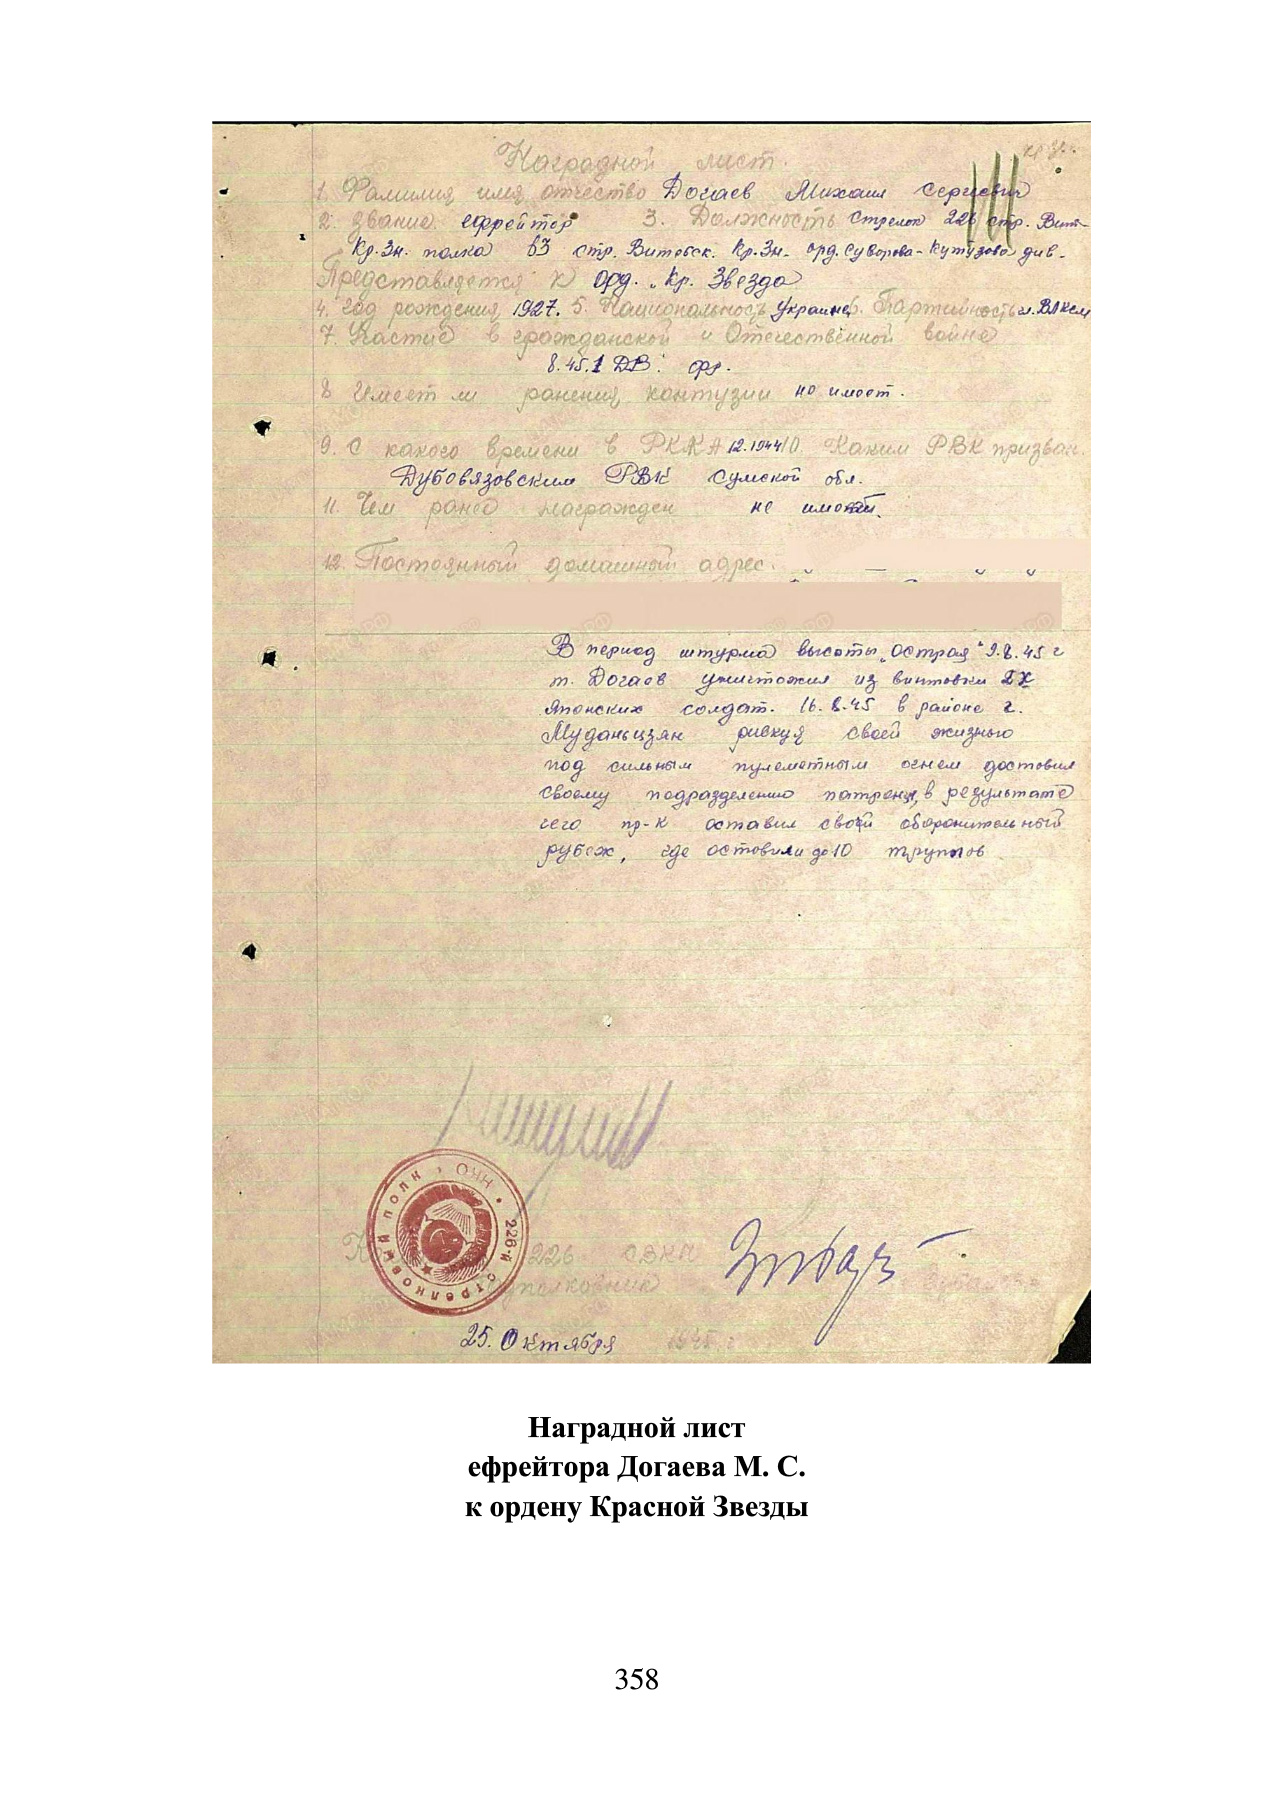 Наградной лист.
1. Фамилия имя отчество Догаев Михаил Сергеевич
2. Звание ефрейтор 3. Должность стрелок 226 стр. Вит-
Кр.Зн. полка 63 стр. Витебск. Кр.Зн. орд. Суворова-Кутузова див.
Представляется к орд. „Кр. Звезда
4. Год рождения 1927. 5. Национальность Украинец 6. Партийность чл. ВЛКСМ
7. Участие в гражданской и Отечественной война
8.45. 1 ДВ. фр.
8 Имеет ли ранения контузии не имеет.
9. С какого времени в РККА 12.1944 10. Каким РВК призван.
Дубовязовским РВК Сумской обл.
11. Чем ранее награжден не имеет.
12. Постоянный домашный адрес.
В период штурма высоты „Острая" 9.8.45 г
т. Догаев уничтожил из винтовки 2х
японских солдат. 16.8.45 в районе г.
Муданьцзян рискуя своей жизнью
под сильным пулеметным огнем доставил
своему подразделению патроны, в результате
чего пр-к оставил свой оборонительный
рубеж, где оставили до 10 трупов
226-й стрелковый полк
226
25. Октября 1945 г.
Наградной лист
ефрейтора Догаева М. С.
к ордену Красной Звезды
358